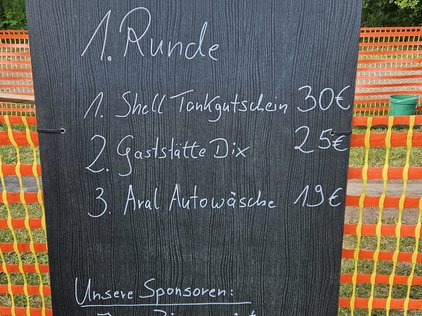 1. Runde
1. Shell Tankgutschein 30€
2. Gaststätte Dix 25€
3. Aral Autowäsche 19€
Unsere Sponsoren: